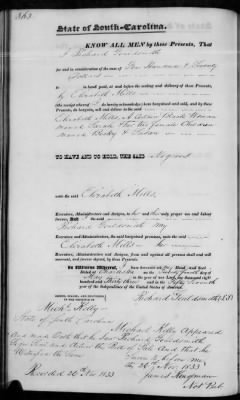 363
State of South-Carolina.
KNOW ALL MEN by these Presents, That
I Richard Fouldsmith
for and in consideration of the sum of Two Hundred & Seventy
Dollars
to in hand paid, at and before the sealing and delivery of these Presents,
by Elizabeth Mills
the receipt whereof I do hereby acknowledge have bargained and sold, and by these
Presents, do bargain, sell and deliver to the said
Elizabeth Mills, A Certain Black Woman
named Sarah & Her two female Children
named Becky & Susan
TO HAVE AND TO HOLD, THE SAID Negroes
unto the said Elizabeth Mills,
Executors, Administrators and Assigns, to her and their only proper use and behoof,
forever. And the said
Richard Fouldsmith my
Executors and Administrators, the said bargained premises, unto the said
Elizabeth Mills her
Executors, Administrators and Assigns, from and against all persons shall and will
warrant, and forever defend, by these Presents.
In Witness Whereof, I have hereunto set my Hand and Seal
Dated at Charleston on the Twenty fourth day of
May in the year of our Lord one thousand eight
hundred and thirty three and in the Fifty Seventh
year of the Independence of the United States of America.
SIGNED, SEALED, AND DELIVERED
Richard Fouldsmith
Michl. Kelly
State of South Carolina
Michael Kelly Appeared
and made Oath that he saw Richard Fouldsmith
Sign Seal and deliver the Bill of Sale and that he
Witnessed the Same
Sworn to before me
the 26 Nov. 1833
Recorded 26th Nov 1833
Not Pub.